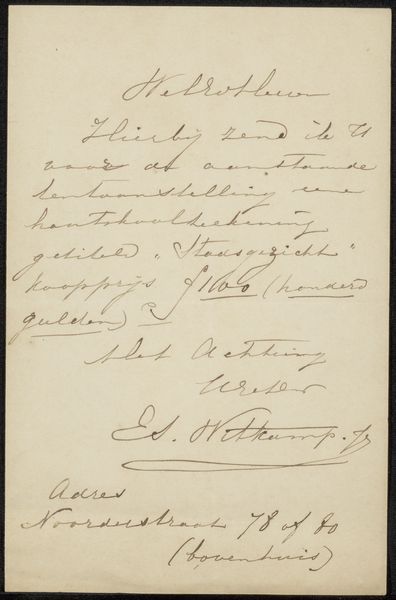 WelEd. Heer
Hierbij zend ik U
voor de aanstaande
tentoonstelling eene
houtskoolteekening
getiteld „Stadsgezicht"
koopprijs ƒ100 (honderd
gulden)
Met Achting
UwEdDr
E S. Witkamp. Jr
Adres
Noorderstraat 78 of 80
(bovenhuis)